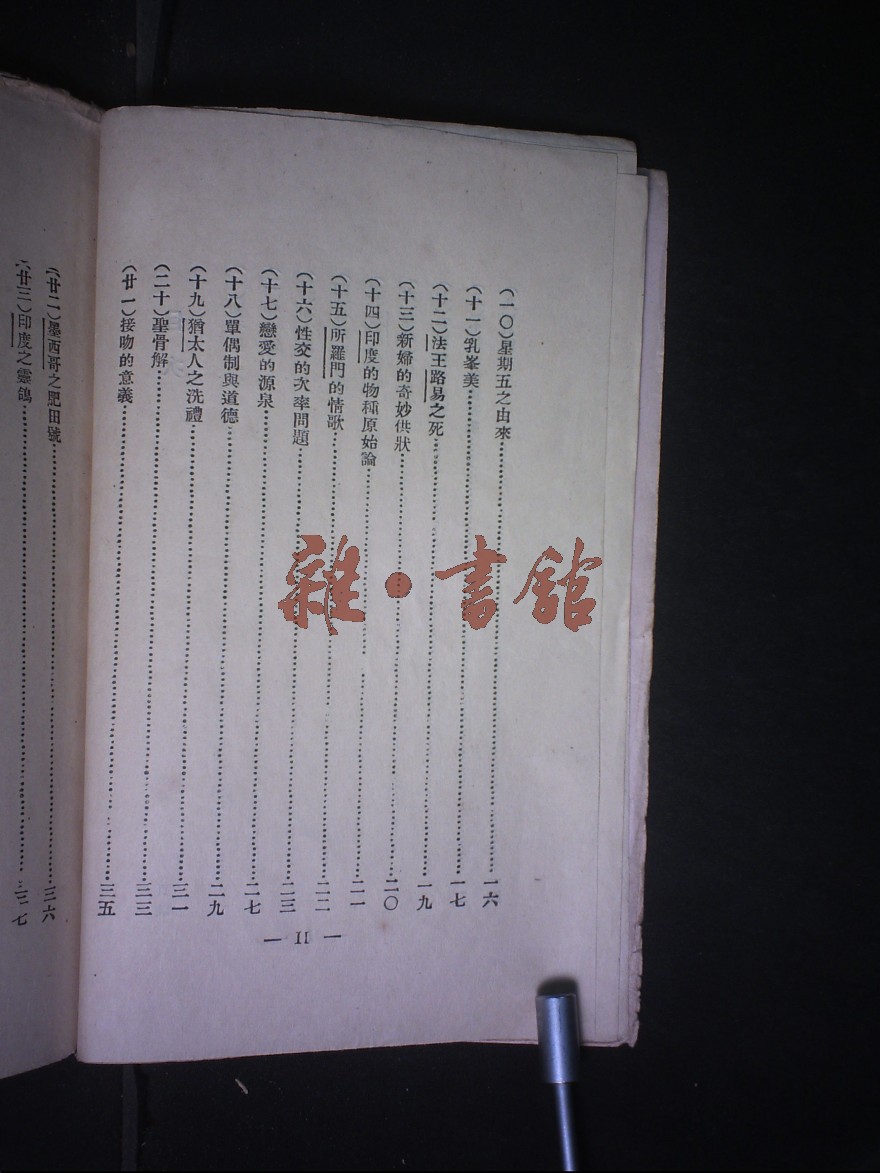 (一〇)星期五之由來……一六
(十一)乳峯美……一七
(十二)法王路易之死……一九
(十三)新婦的奇妙供狀……二〇
(十四)印度的物種原始論……二一
(十五)所羅門的情歌……二二
(十六)性交的次率問題……二三
(十七)戀愛的源泉……二七
(十八)單偶制與道德……二九
(十九)猶太人之洗禮……三一
(二十)聖骨解……三三
(廿一)接吻的意義……三五
— II —
(廿二)墨西哥之肥田號……三六
(廿三)印度之靈鴿……三七
雜·書館